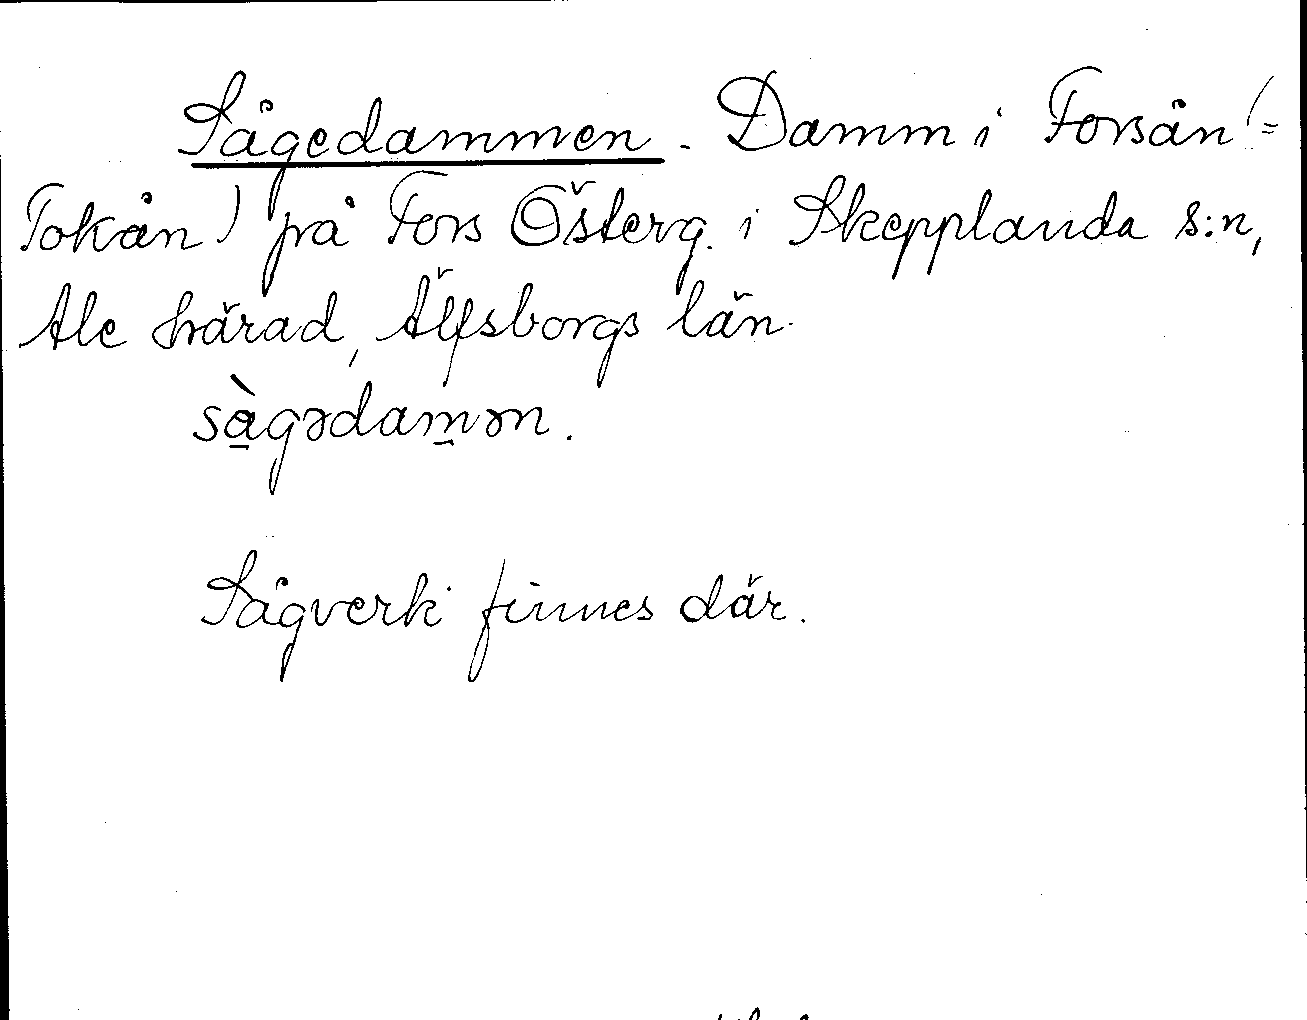 Sågedammen. Damm i Forsån (=
Tokån) på Fors Österg. i Skepplanda s:n,
Ale härad, Älfsborgs län.
sà̱gədam̱ən.
Sågverk finnes där.